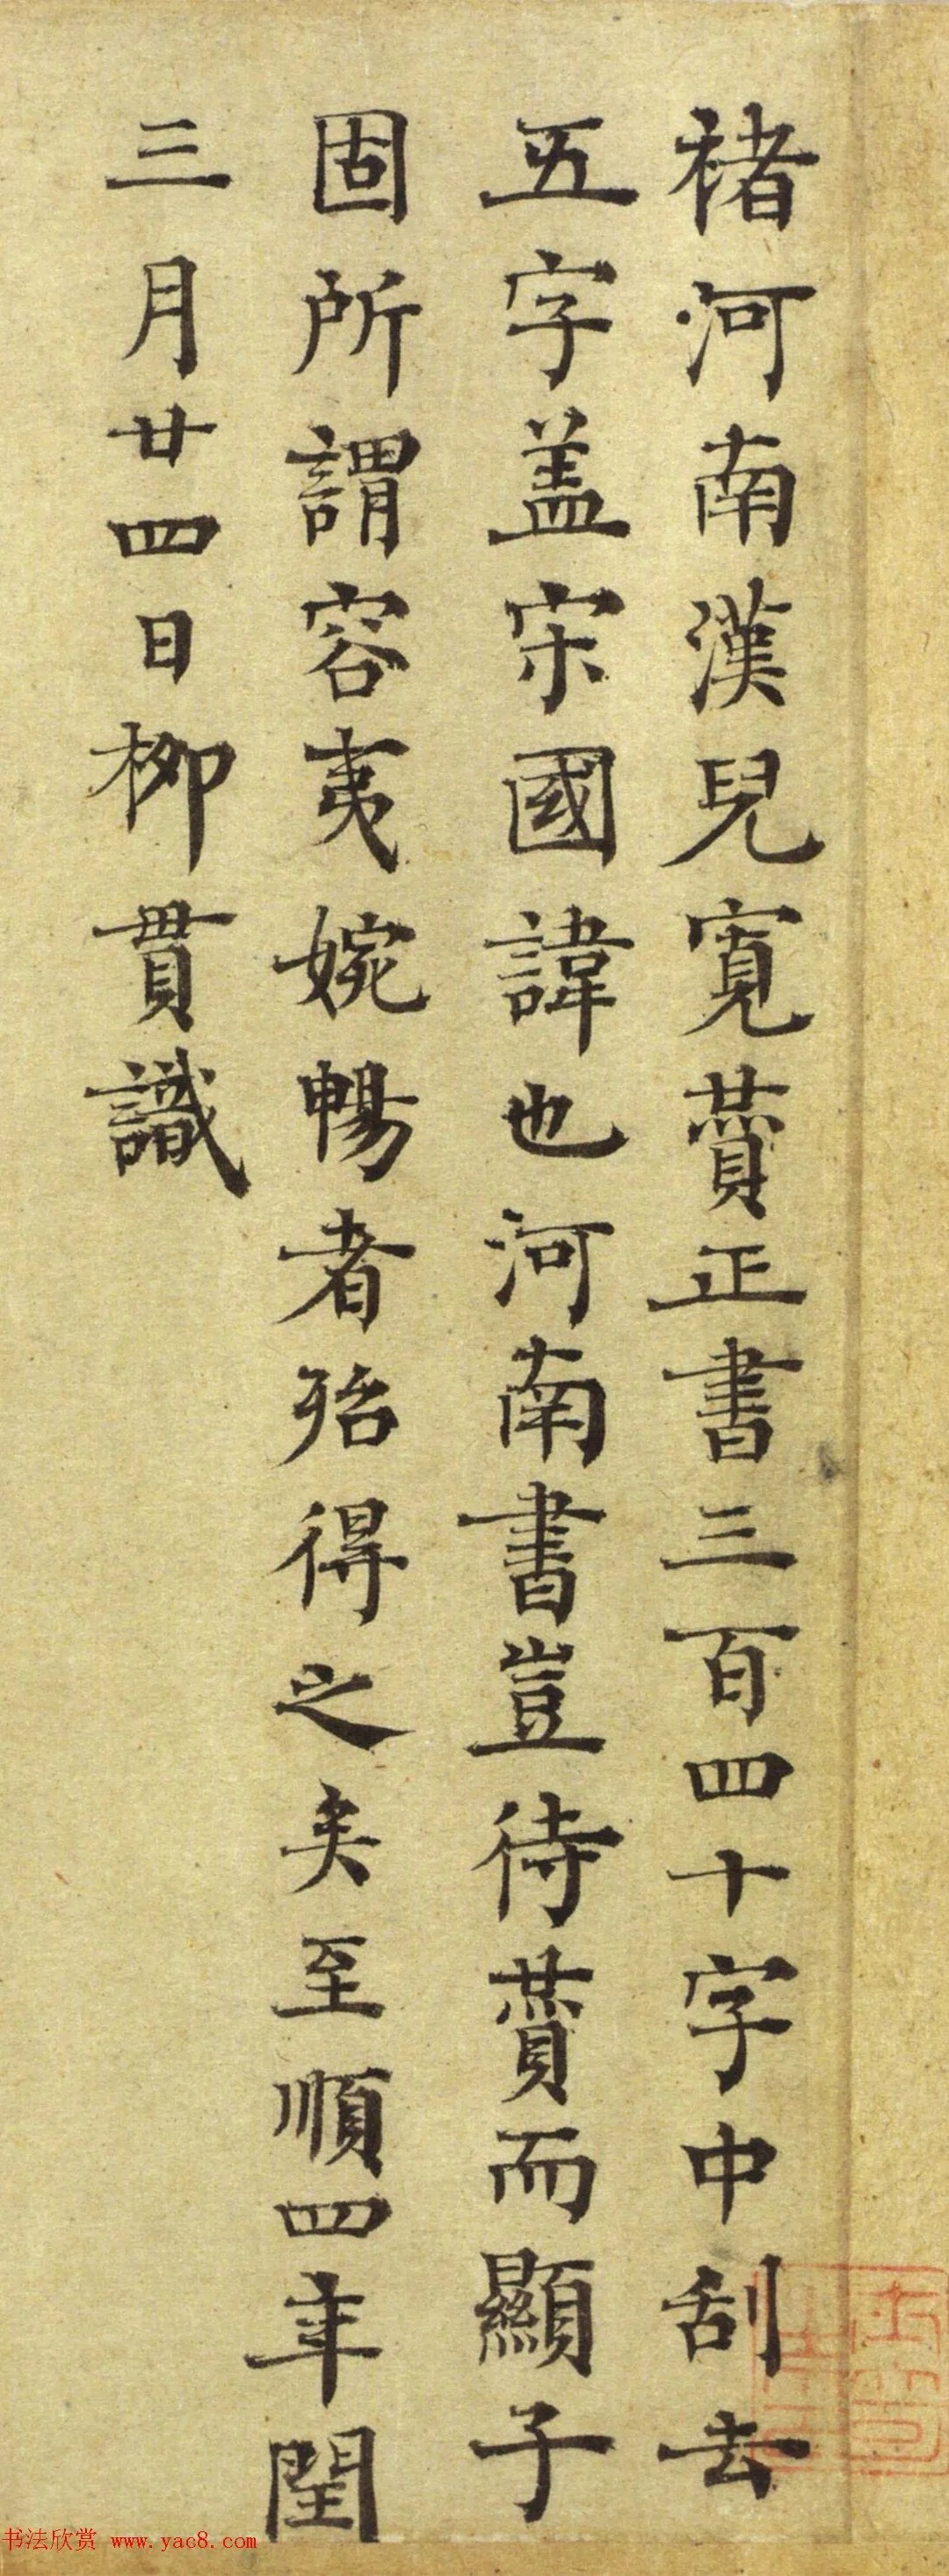 褚河南漢兒寬賛正書三百四十字中刮去
五字盖宋國諱也河南書豈待賛而顯子
固所謂容夷婉暢者殆得之矣至順四年閏
三月廿四日栁貫識
书法欣赏 www.yac8.com